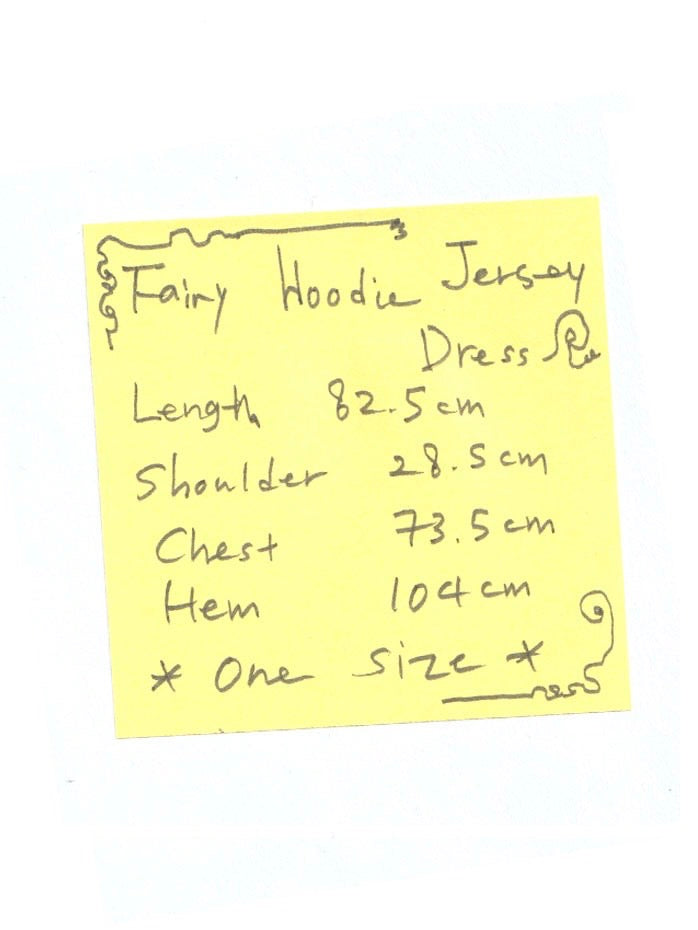 Fairy Hoodie Jersey
Dress
Length 82.5cm
Shoulder 28.5cm
Chest 73.5cm
Hem 104cm
* One size *